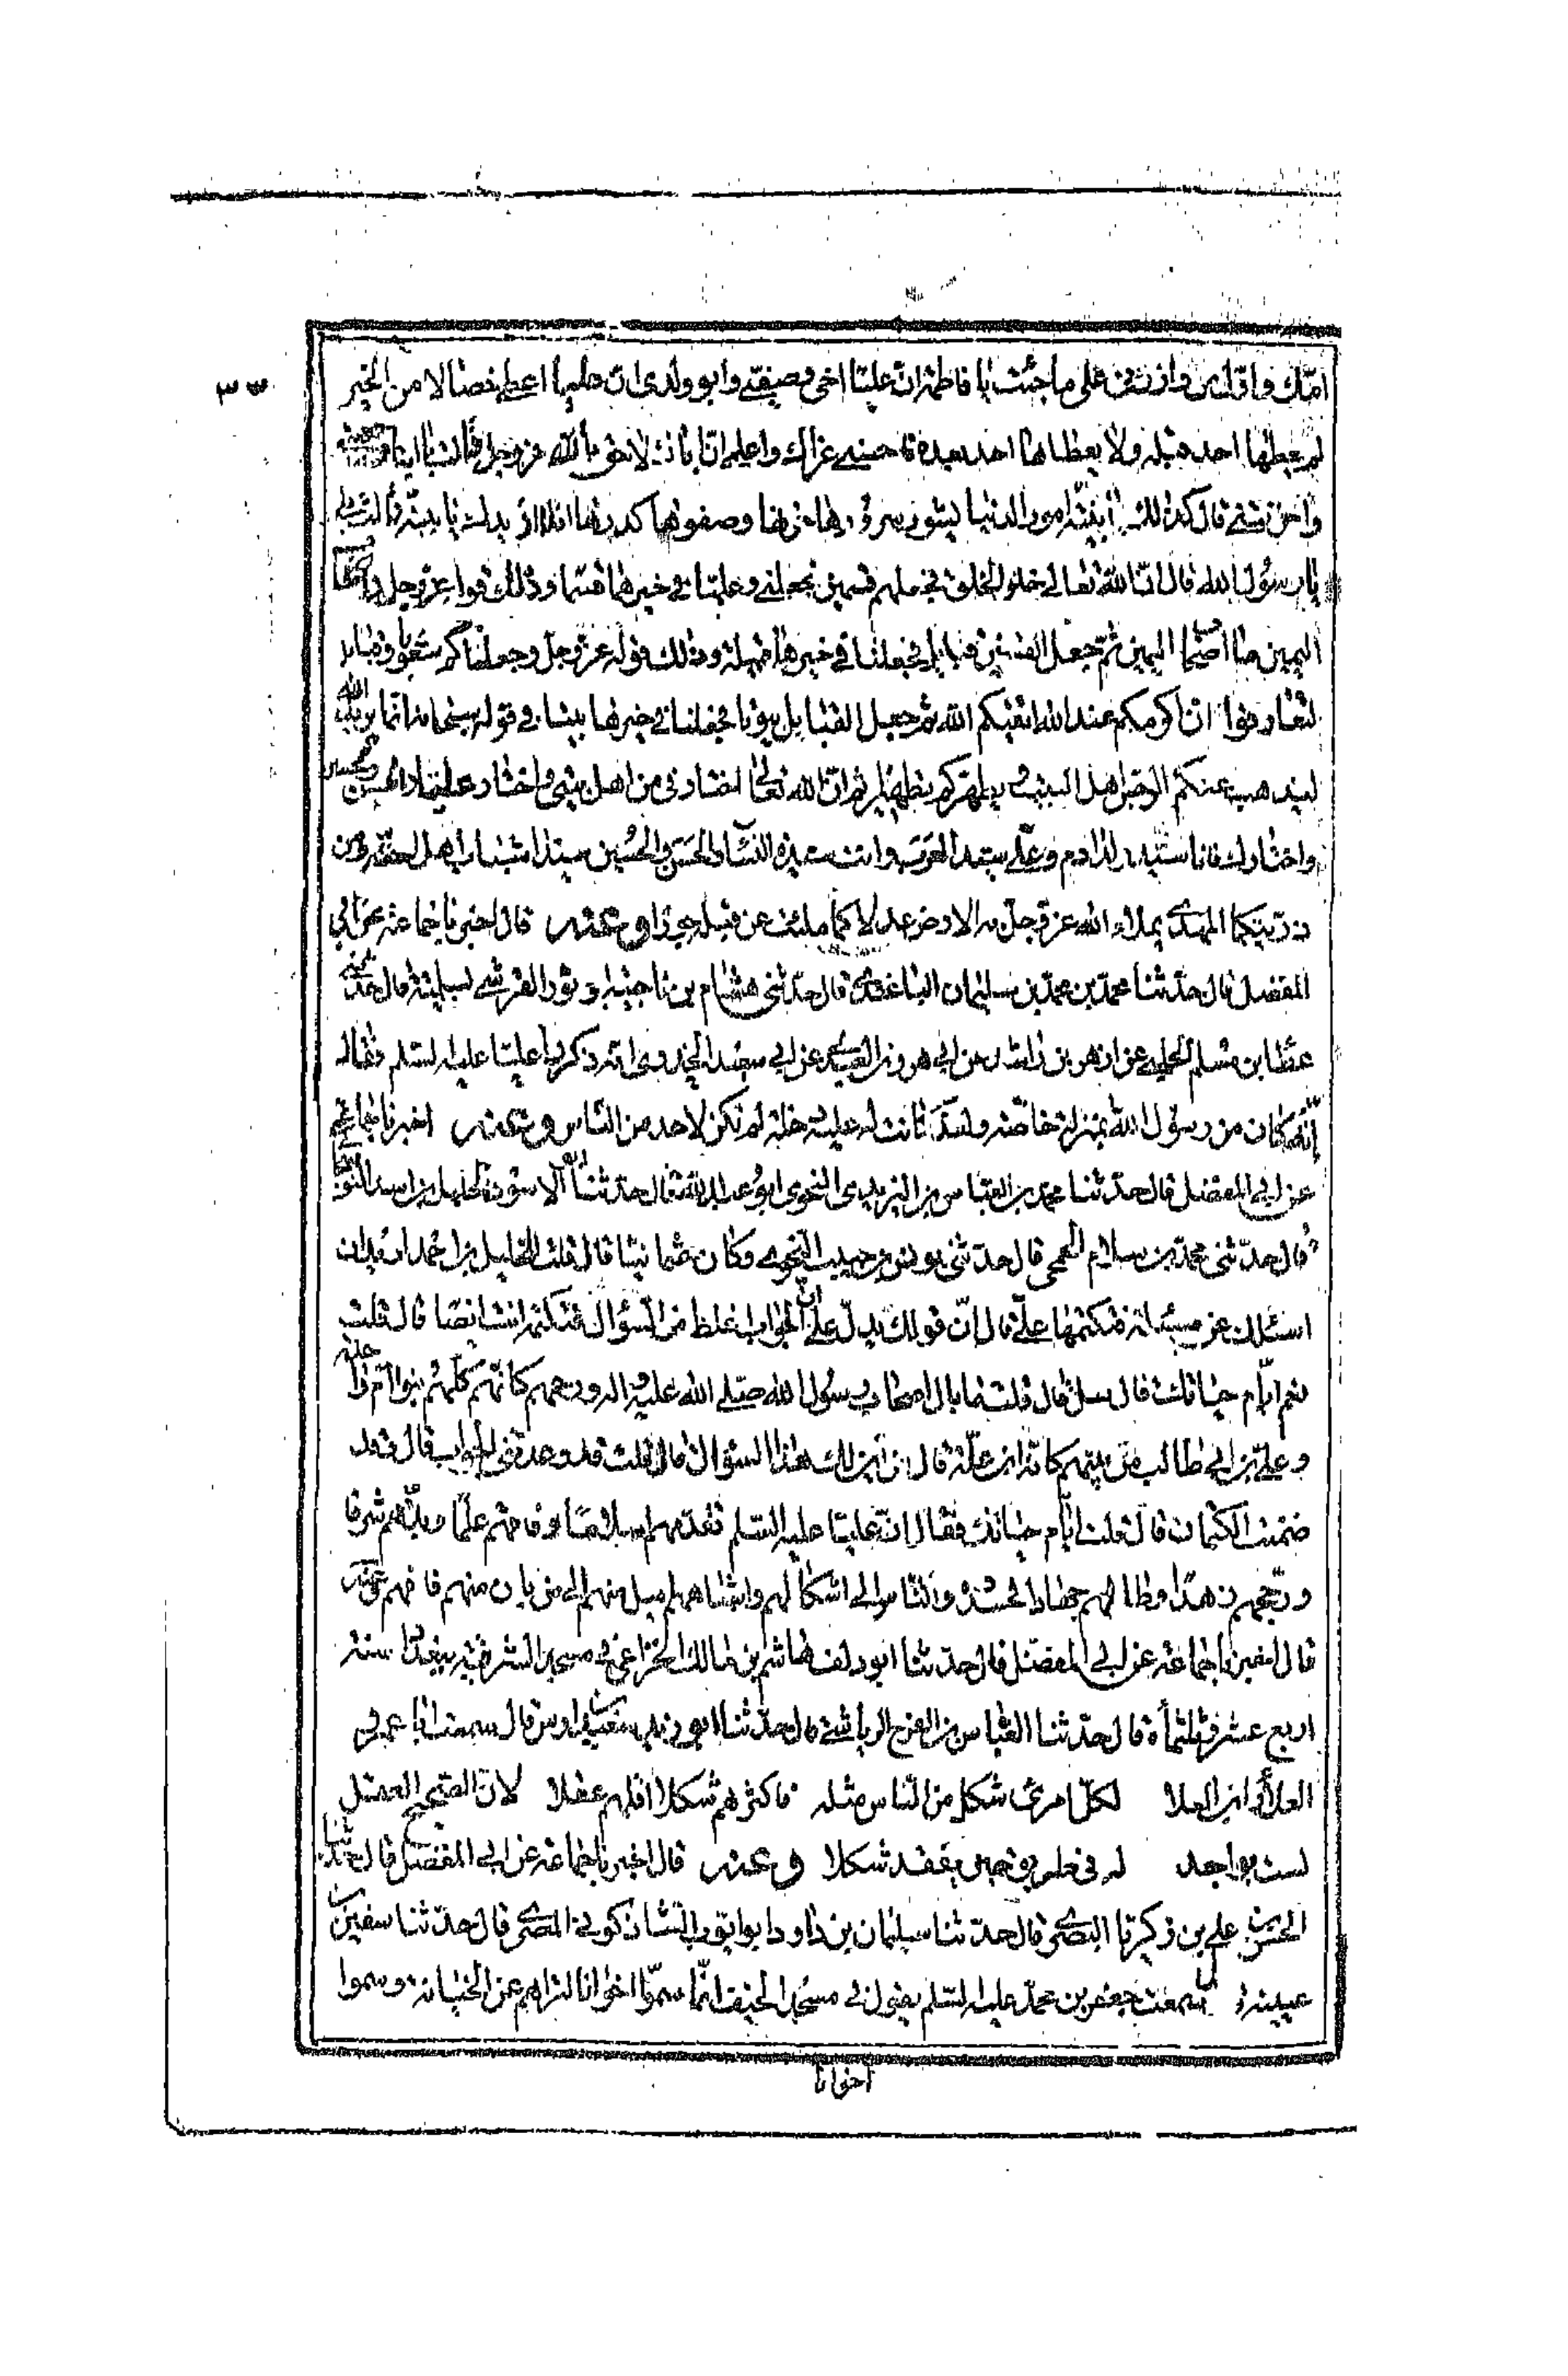 امّك واقلين وازدتين على ما جئت يا فاطمة انّ عليّا اخى وصفيّى وابو ولدى ان عليا اعطى خصالا من الخير
لم يعطها احد قبله ولا يعطاها احد بعده فاحسنى عزاك واعلمى انّ اباك لاحق بالله عزوجل قالت يا ابتاه
واحزنتنى قال كذلك يا بنيّة امور الدنيا يشوب سرورها حزنها وصفوها كدرها افلا ازيدك يا بنيّة قالت بلى
يا رسول الله قال انّ الله تعالى خلق الخلق فجعلهم قسمين فجعلنى وعليّا فى خيرهما قسما وذلك قوله عزوجل واصحاب
اليمين ما اصحاب اليمين ثمّ جعل القسمين قبايل فجعلنا فى خيرها قبيلة وذلك قوله عزوجل وجعلناكم شعوبا وقبايل
لتعارفوا انّ اكرمكم عند الله اتقيكم ثم جعل القبايل بيوتا فجعلنا فى خيرها بيتا فى قوله سبحانه انّما يريد الله
ليذهب عنكم الرجس اهل البيت ويطهّركم تطهيرا ثم انّ الله تعالى اختارنى من اهل بيتى واختار عليّا والحسن والحسين
واختارك فانا سيّد ولد ادم وعلىّ سيّد العرب وانت سيّدة النساء والحسن والحسين سيّدا شباب اهل الجنّة ومن
ذريّتكما المهدى يملاء الله عزوجل به الارض عدلا كما ملئت من قبله جورا وعنه قال اخبرنا جماعة عن ابى
المفضل قال حدّثنا محمّد بن محمّد بن سليمان الباغندى قال حدّثنى هشام بن ناجية القرشى قال حدّثنا
عطا بن مسلم الحلبى عن ازهر بن راشد عن ابى هرون العبدى عن ابى سعيد الخدرى انّه ذكر عليّا عليه السلم فقال
إنّه كان من رسول الله بمنزلة خاصّة ولقد كانت له عليه دخلة لم تكن لاحد من النّاس وعنه اخبرنا جماعة
عن ابى المفضل قال حدّثنا محمّد بن العباس بن اليزيدى النحوى ابو عبد الله قال حدّثنا ابو الاسود الخليل بن اسد النوشجانى
قال حدّثنى محمّد بن سلام الجمحى قال حدّثنى يونس بن حبيب النحوى وكان عثمانيّا قال قلت للخليل بن احمد اريد ان
اسئلك عن مسئلة فتكتمها علىّ قال انّ قولك يدلّ على ان الجواب اغلظ من السّؤال فتكتمه انت ايضا قال قلت
نعم ايّام حياتك قال سل قال قلت ما بال اصحاب رسول الله صلى الله عليه واله ورحمهم كانّهم كلّهم بنوا امّ واحدة
وعلىّ بن ابى طالب من بينهم كانّه ابن علّة قال من اين لك هذا السؤال قال قلت قد وعدتنى الجواب قال وقد
ضمنت الكتمان قال قلت ايّام حياتك فقال انّ عليّا عليه السلم تقدمهم اسلاما وفاقهم علما وبذّهم شرفا
ورجّحهم زهدا وطالهم جهادا فحسدوه والنّاس الى اشكالهم واشباههم اميل منهم الى من بان منهم فافهم وعنه
قال اخبرنا جماعة عن ابى المفضّل قال حدّثنا ابو دلف هاشم بن مالك الخزاعى فى مسجد الشرقيّة ببغداد سنة
اربع عشر وثلثمأة قال حدّثنا العبّاس بن الفرج الرياشى قال حدّثنا ابو زيد سعيد بن اوس قال سمعت ابا عمرو بن
العلا لكلّ امرئ شكل من النّاس مثله فاكثرهم شكلا اقلهم عقلا لانّ الصّحيح العقل
لست بواجد له فى طريق حين يفقد شكلا وعنه قال اخبرنا جماعة عن ابى المفضّل قال حدّثنا
الحسن بن على بن زكريّا البصرى قال حدّثنا سليمان بن داود ابو ايّوب الشاذكونى المصرى قال حدّثنا سفين بن
عيينة قال سمعت جعفر بن محمّد عليه السّلم يقول فى مسجد الخيف انّما سمّوا اخوانا لنزاهتهم عن الخيانة وسموا
اخوانا